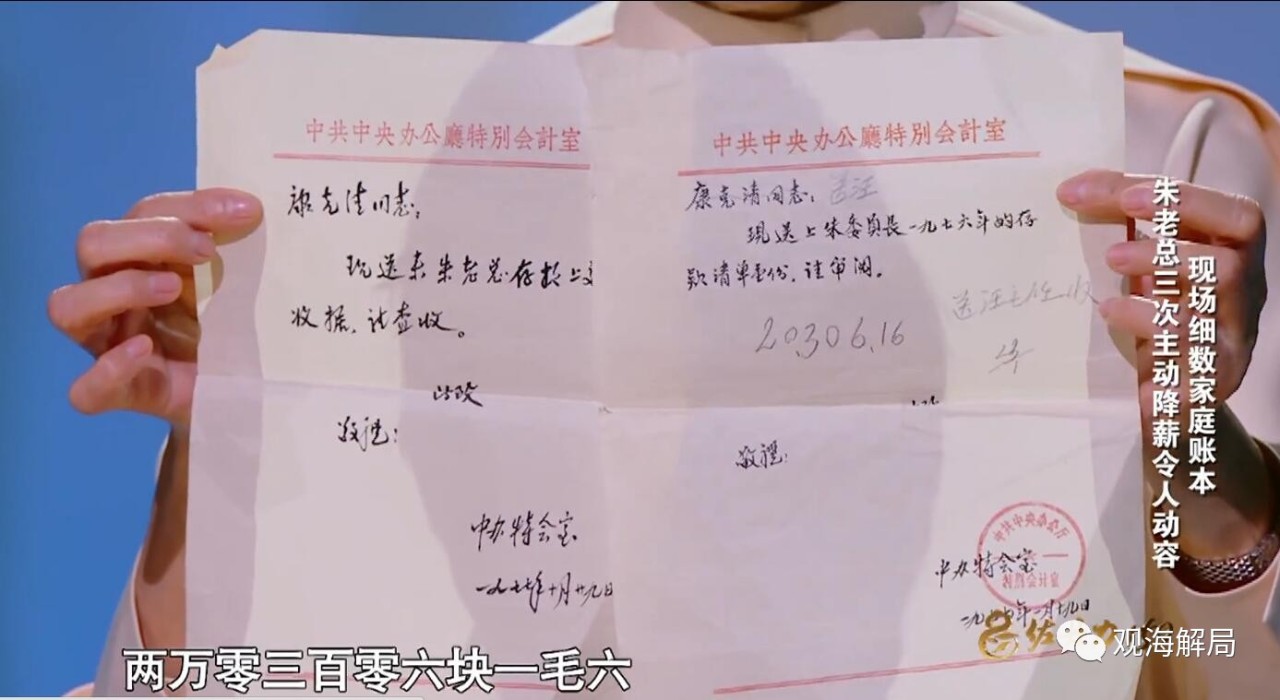 中共中央办公廳特别会計室
康克清同志：
现送去朱老总存折上交
收据，请查收。
此致
敬禮！
中办特会室
一九七七年十月廿九日
中共中央办公廳特别会計室
康克清同志： 送汪
現送上朱委員長一九七六年的存
款清单壹份，请审阅。
20306.16
送汪主任收
敬禮！
中共中央办公厅
特别会计室
中办特会室
现场细数家庭账本
朱老总三次主动降薪令人动容
两万零三百零六块一毛六
观海解局